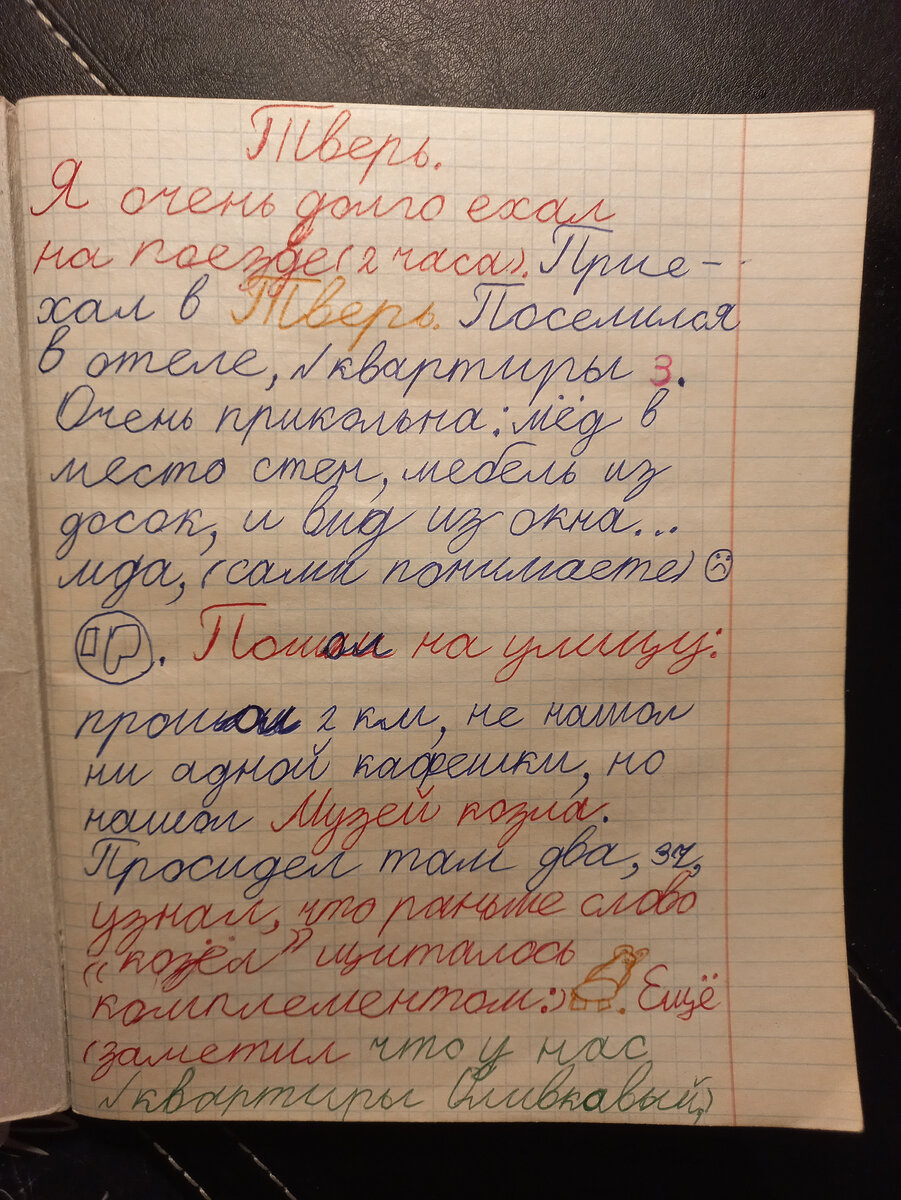 Тверь.
Я очень долго ехал
на поезде(2 часа). Прие-
хал в Тверь. Поселился
в отеле, √квартиры 3.
Очень прикольна: мёд в
место стен, мебель из
досок, и вид из окна...
мда, (сами понимаете)
Пошол на улицу:
прошол 2 км, не нашол
ни адной кафешки, но
нашол Музей козла.
Просидел там два, 3ч,
узнал, что раньше слово
„козёл" щиталось
комплементом:). Ещё
(заметил что у нас
√квартиры Сливкавый,)